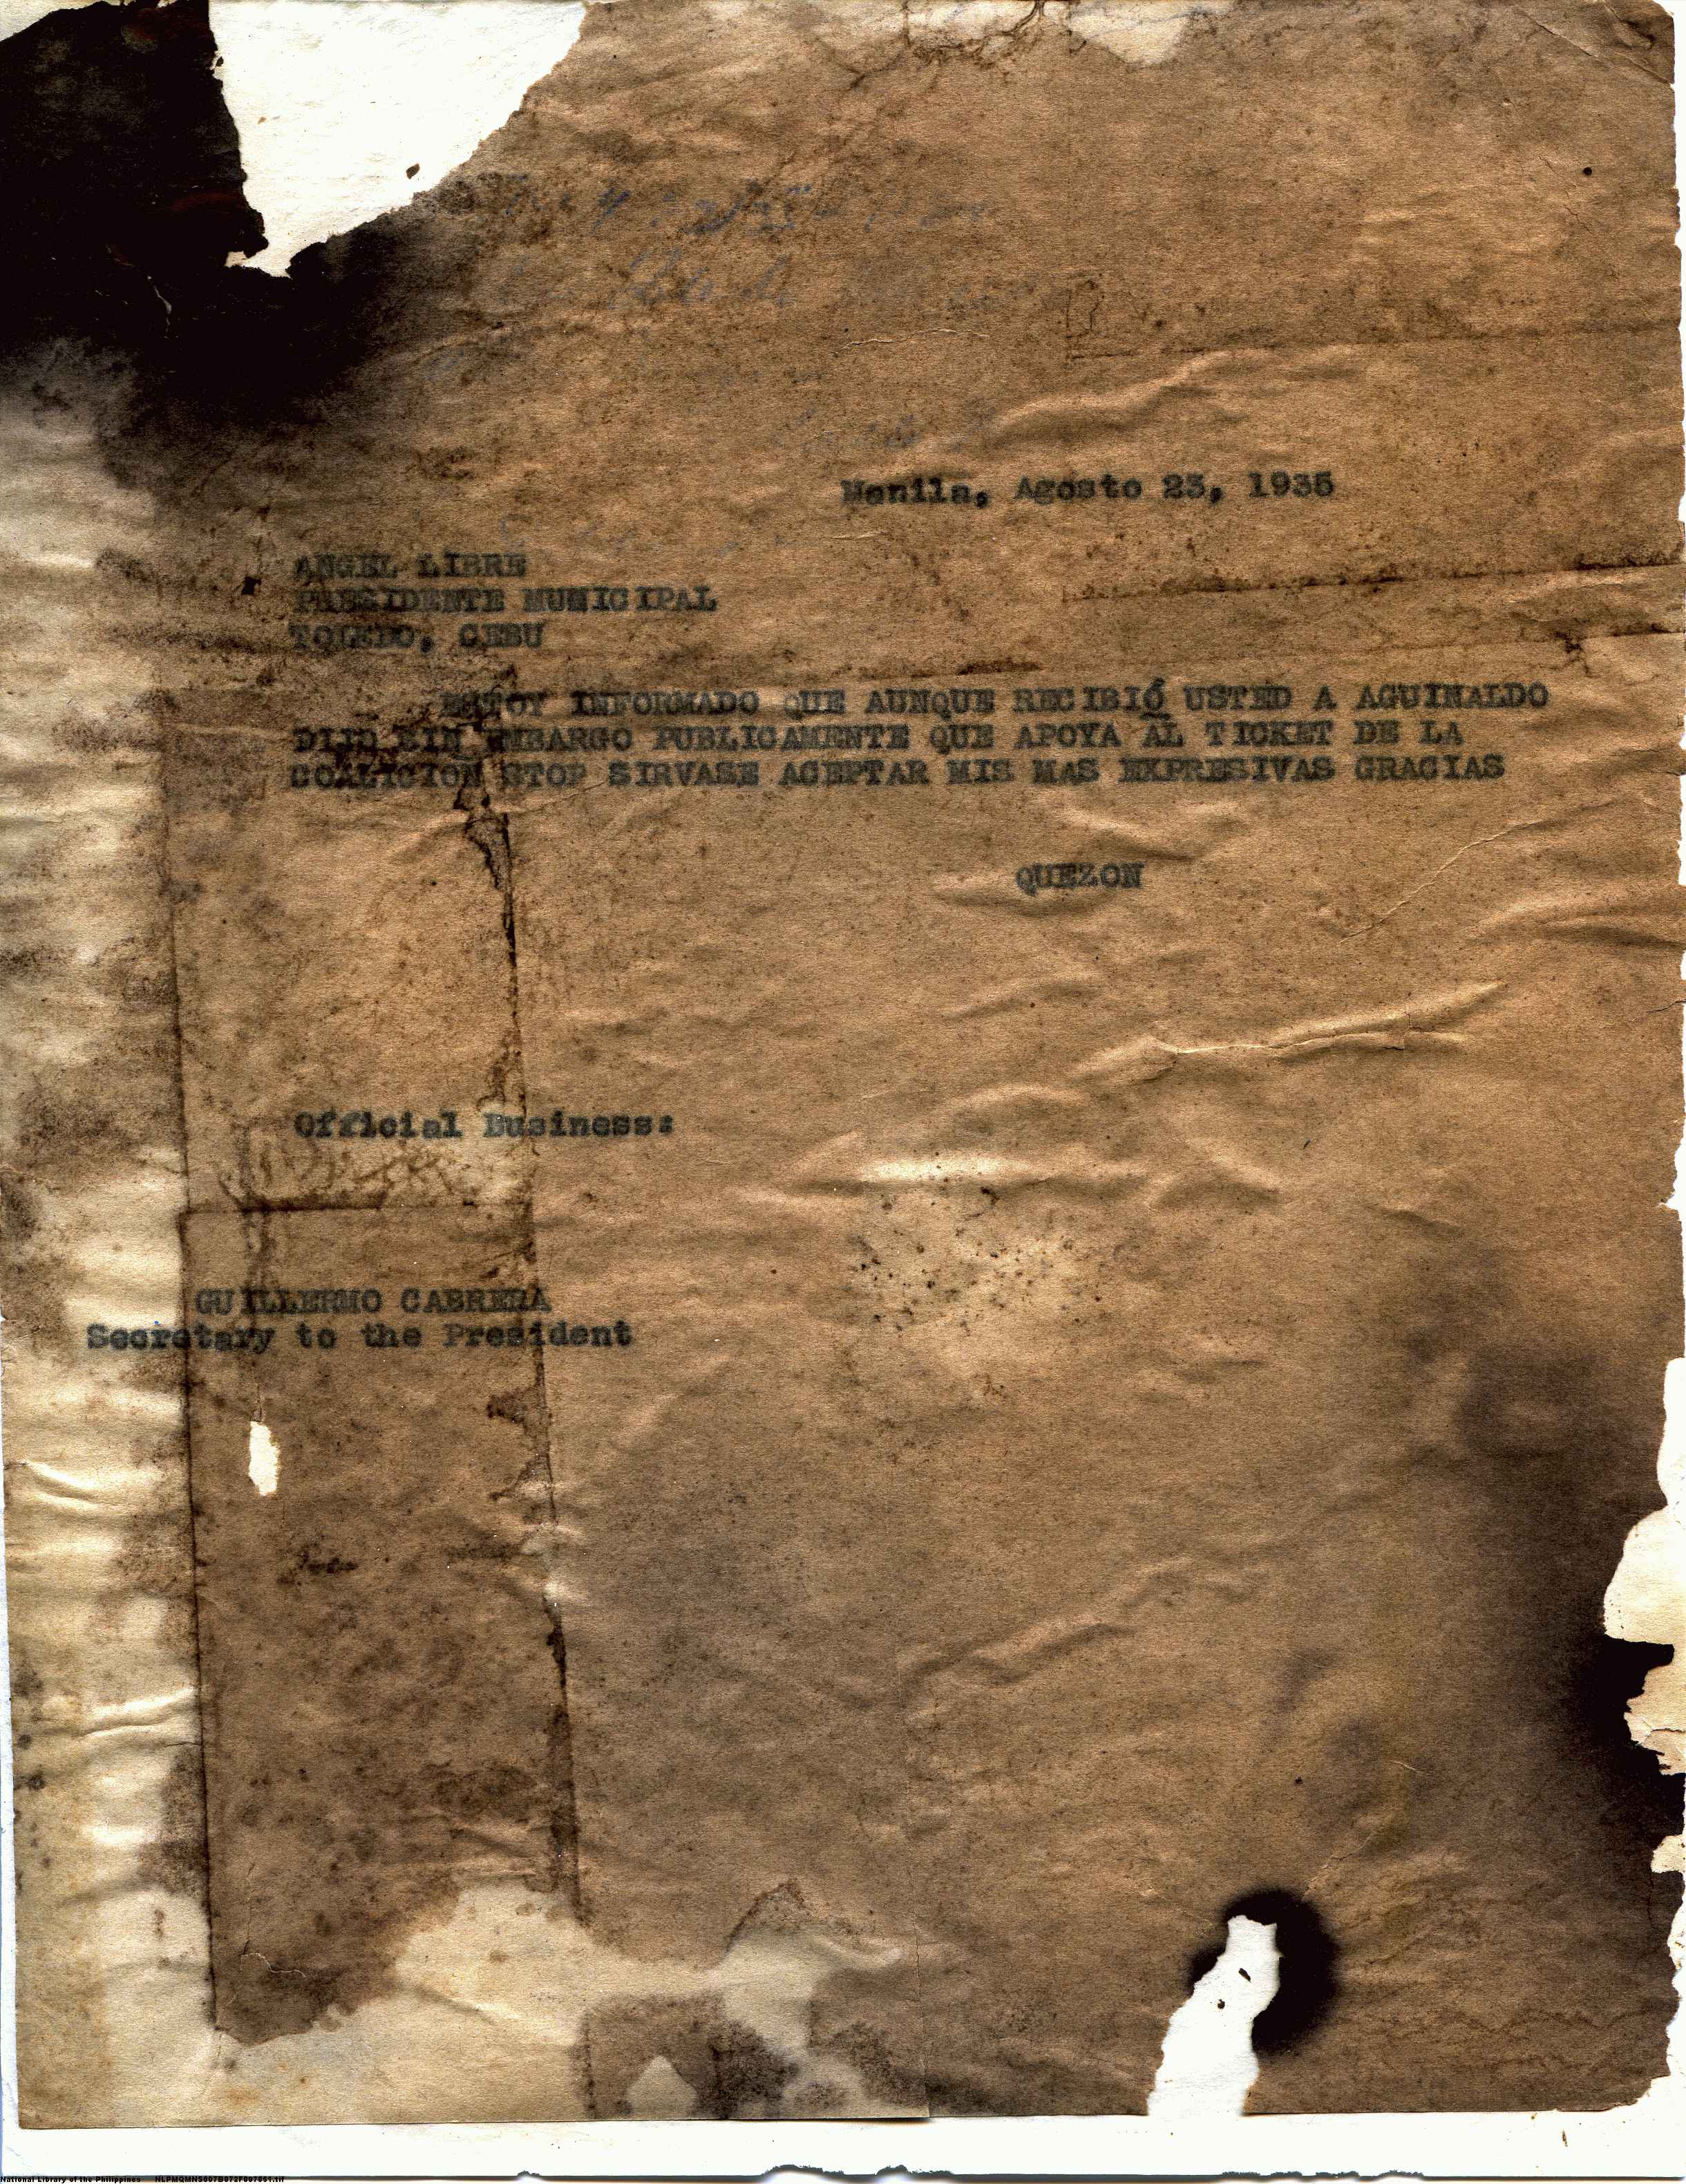 Manila, Agosto 23, 1935
ANGEL LIBRE
PRESIDENTE MUNICIPAL
TOLEDO, CEBU
ESTOY INFORMADO QUE AUNQUE RECIBIÓ USTED A AGUINALDO
DIJO SIN EMBARGO PUBLICAMENTE QUE APOYA AL TICKET DE LA
COALICION STOP SIRVASE ACEPTAR MIS MAS EXPRESIVAS GRACIAS
QUEZON
Official Business:
GUILLERMO CABRERA
Secretary to the President
National Library of the Philippines